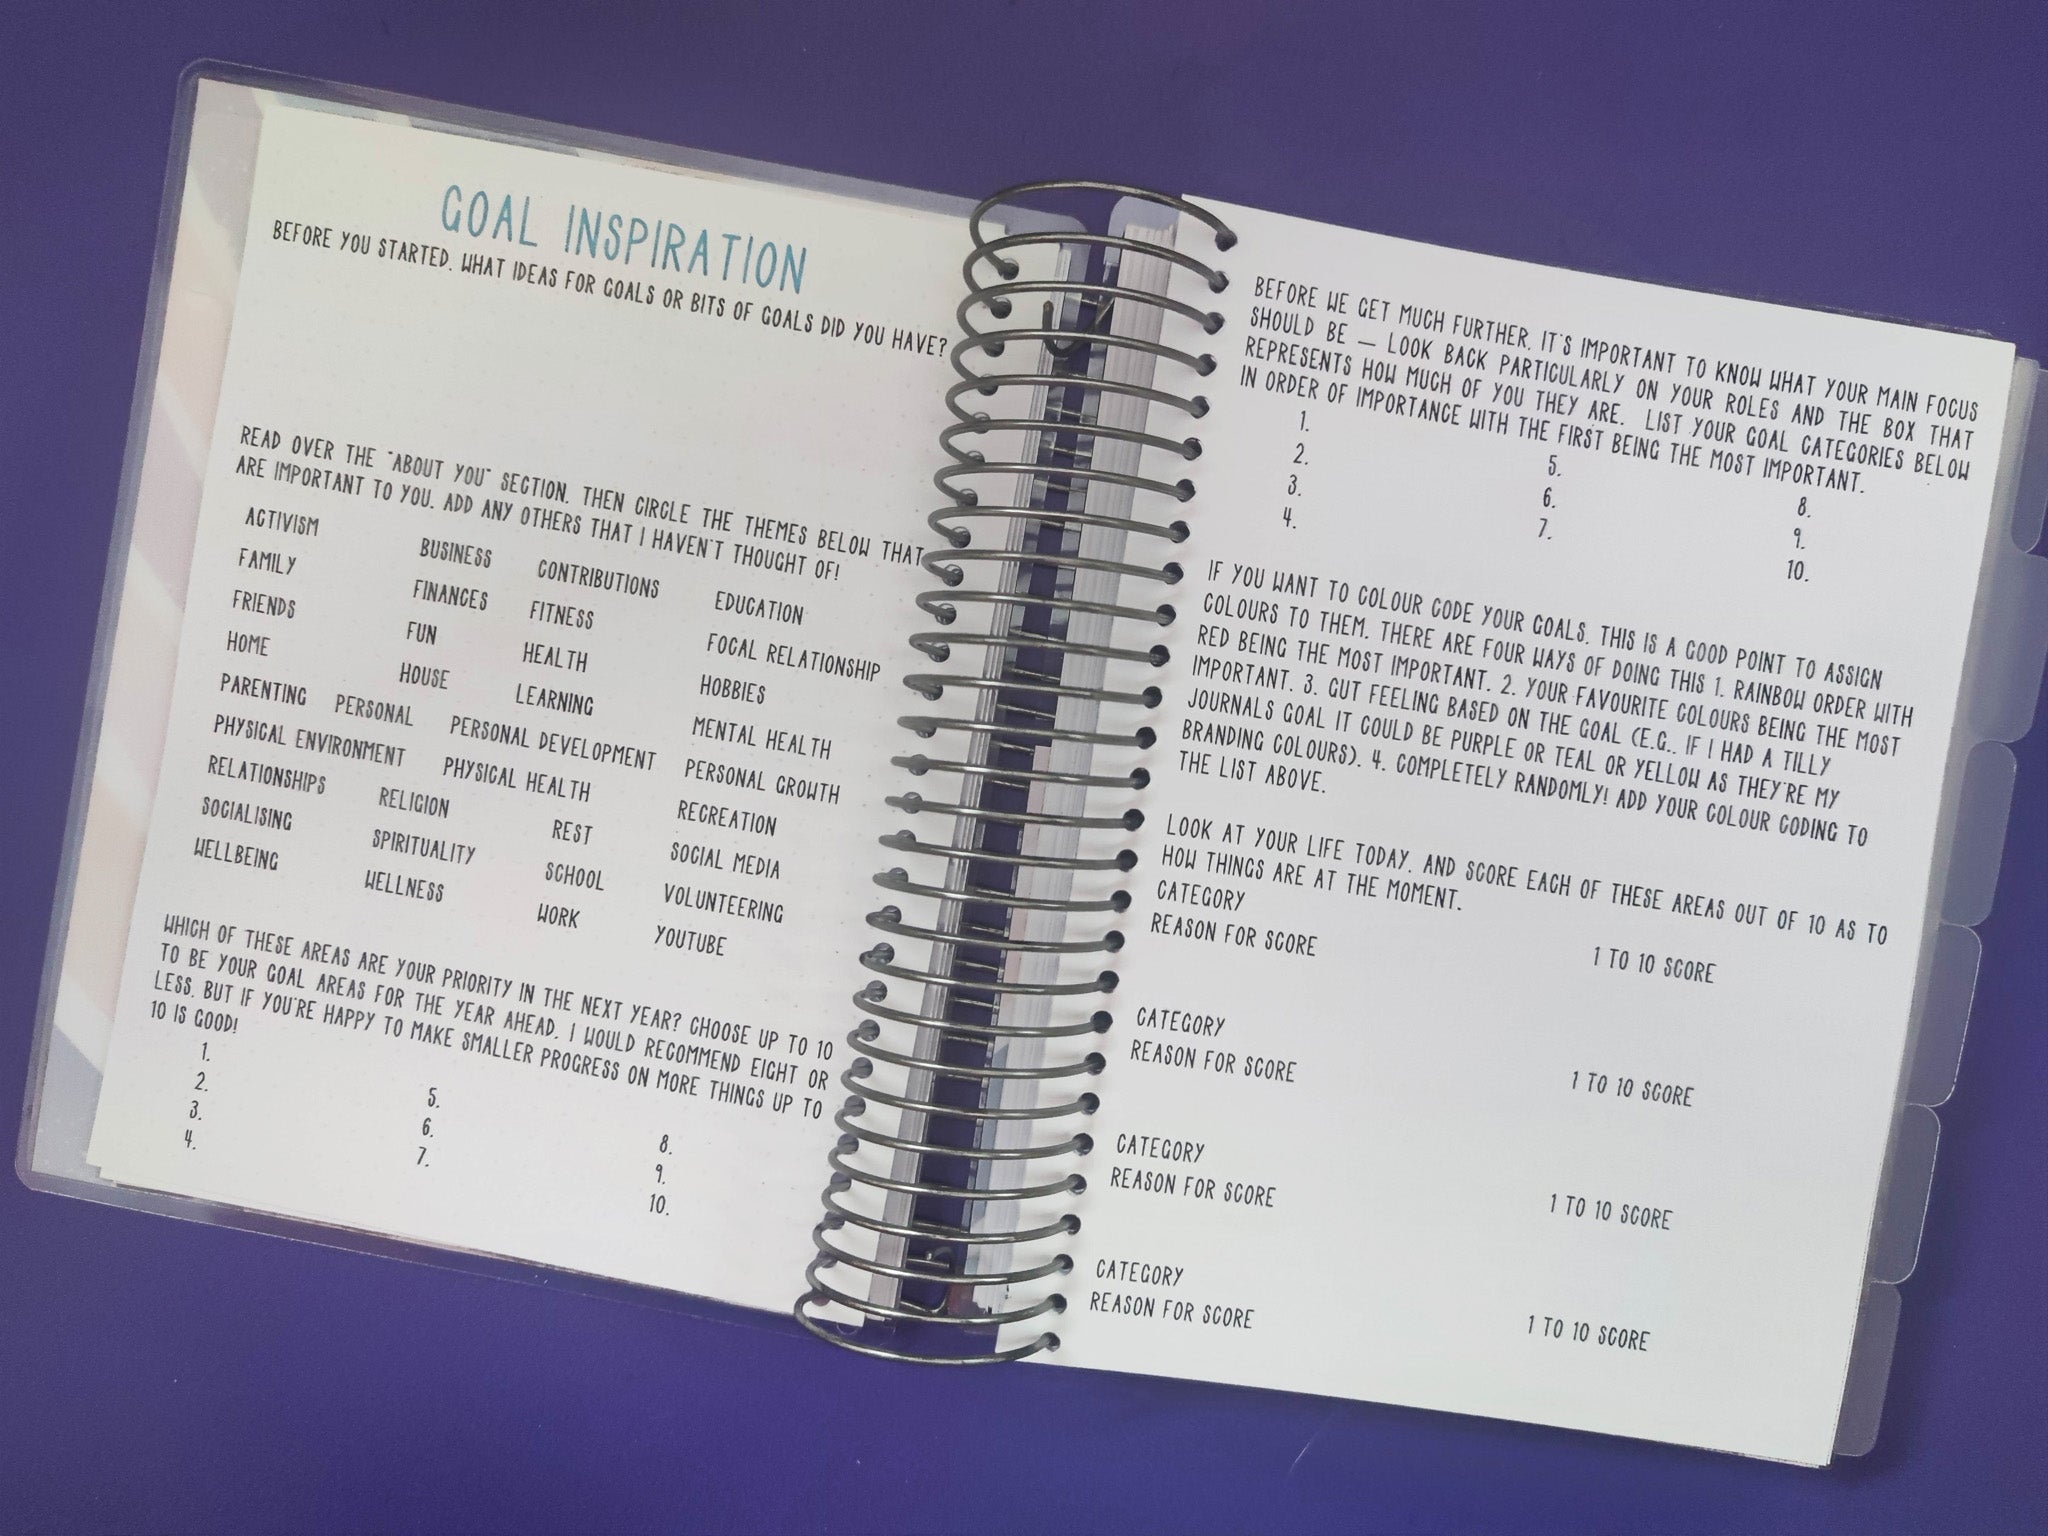 GOAL INSPIRATION
BEFORE YOU STARTED, WHAT IDEAS FOR GOALS OR BITS OF GOALS DID YOU HAVE?
READ OVER THE "ABOUT YOU" SECTION, THEN CIRCLE THE THEMES BELOW THAT
ARE IMPORTANT TO YOU. ADD ANY OTHERS THAT I HAVEN'T THOUGHT OF!
ACTIVISM BUSINESS CONTRIBUTIONS EDUCATION
FAMILY FINANCES FITNESS FOCAL RELATIONSHIP
FRIENDS FUN HEALTH HOBBIES
HOME HOUSE LEARNING MENTAL HEALTH
PARENTING PERSONAL PERSONAL DEVELOPMENT PERSONAL GROWTH
PHYSICAL ENVIRONMENT PHYSICAL HEALTH RECREATION
RELATIONSHIPS RELIGION REST SOCIAL MEDIA
SOCIALISING SPIRITUALITY SCHOOL VOLUNTEERING
WELLBEING WELLNESS WORK YOUTUBE
WHICH OF THESE AREAS ARE YOUR PRIORITY IN THE NEXT YEAR? CHOOSE UP TO 10
TO BE YOUR GOAL AREAS FOR THE YEAR AHEAD. I WOULD RECOMMEND EIGHT OR
LESS, BUT IF YOU'RE HAPPY TO MAKE SMALLER PROGRESS ON MORE THINGS UP TO
10 IS GOOD!
1.
2.
3.
4.
5.
6.
7.
8.
9.
10.
BEFORE WE GET MUCH FURTHER, IT'S IMPORTANT TO KNOW WHAT YOUR MAIN FOCUS
SHOULD BE – LOOK BACK PARTICULARLY ON YOUR ROLES AND THE BOX THAT
REPRESENTS HOW MUCH OF YOU THEY ARE. LIST YOUR GOAL CATEGORIES BELOW
IN ORDER OF IMPORTANCE WITH THE FIRST BEING THE MOST IMPORTANT.
1.
2.
3.
4.
5.
6.
7.
8.
9.
10.
IF YOU WANT TO COLOUR CODE YOUR GOALS, THIS IS A GOOD POINT TO ASSIGN
COLOURS TO THEM. THERE ARE FOUR WAYS OF DOING THIS 1. RAINBOW ORDER WITH
RED BEING THE MOST IMPORTANT. 2. YOUR FAVOURITE COLOURS BEING THE MOST
IMPORTANT. 3. GUT FEELING BASED ON THE GOAL (E.G., IF I HAD A TILLY
JOURNALS GOAL IT COULD BE PURPLE OR TEAL OR YELLOW AS THEY'RE MY
BRANDING COLOURS). 4. COMPLETELY RANDOMLY! ADD YOUR COLOUR CODING TO
THE LIST ABOVE.
LOOK AT YOUR LIFE TODAY, AND SCORE EACH OF THESE AREAS OUT OF 10 AS TO
HOW THINGS ARE AT THE MOMENT.
CATEGORY
REASON FOR SCORE 1 TO 10 SCORE
CATEGORY
REASON FOR SCORE 1 TO 10 SCORE
CATEGORY
REASON FOR SCORE 1 TO 10 SCORE
CATEGORY
REASON FOR SCORE 1 TO 10 SCORE